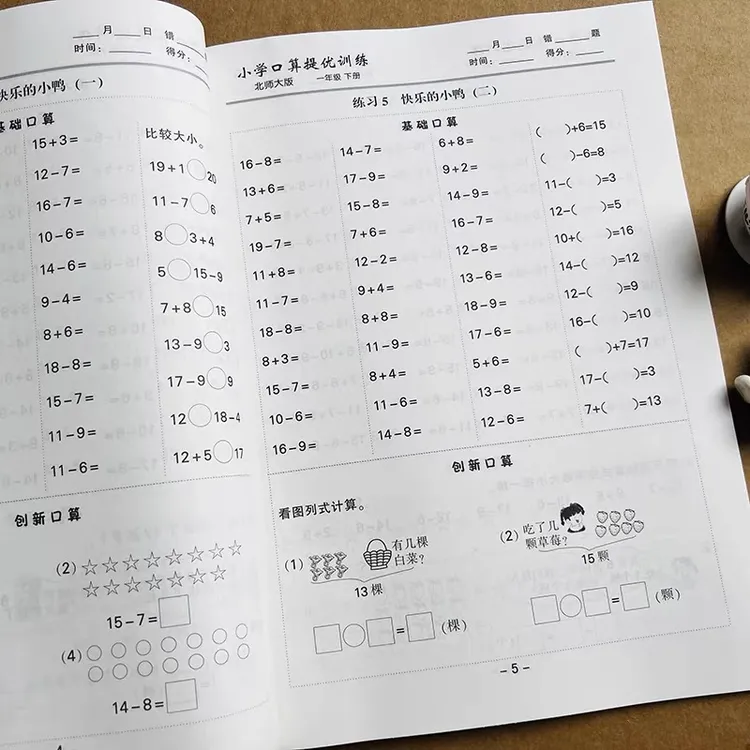 月 日 错
时间: 得分:
快乐的小鸭 (一)
基础口算
15+3=
12-7=
16-7=
10-6=
14-6=
9-4=
8+6=
18-8=
15-7=
11-9=
11-6=
比较大小。
19+1○20
11-7○6
8○3+4
5○15-9
7+8○15
13-9○3
17-9○9
12○18-4
12+5○17
创新口算
(2)
15-7=
(4)
14-8=
小学口算提优训练
北师大版 一年级 下册
月 日 错 题
时间: 得分:
练习5 快乐的小鸭 (二)
基础口算
16-8=
13+6=
7+5=
19-7=
11+8=
11-7=
18-8=
8+3=
15-7=
10-6=
16-9=
14-7=
17-9=
15-8=
7+6=
12-2=
9+4=
8+8=
11-9=
8+4=
11-6=
14-8=
6+8=
9+2=
14-9=
16-7=
12-8=
13-6=
18-9=
17-6=
5+6=
13-8=
12-6=
( )+6=15
( )-6=8
11-( )=3
12-( )=5
10+( )=16
14-( )=12
12-( )=9
16-( )=10
( )+7=17
17-( )=3
7+( )=13
创新口算
看图列式计算。
(1)
有几棵
白菜?
13棵
□○□=□(棵)
(2)
吃了几
颗草莓?
15颗
□○□=□(颗)
- 5 -